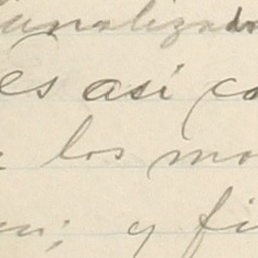 analizad
es así co
los mo
; y fi